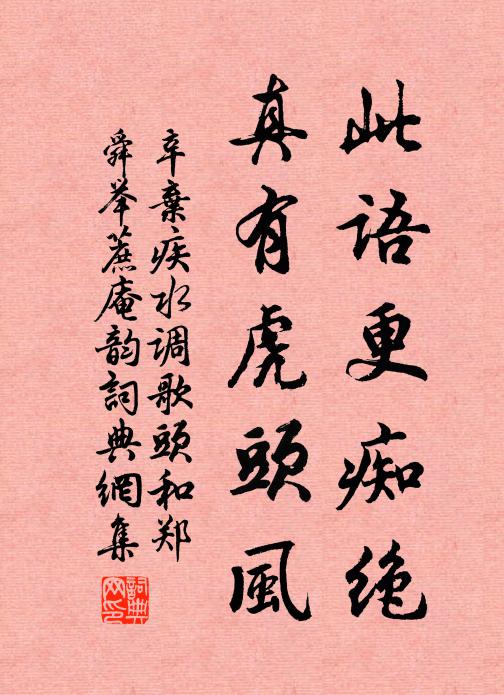 此語更痴绝
真有虎頭風
辛棄疾水调歌頭和郑
舜举蔗庵韵詞典網集
詞典網印